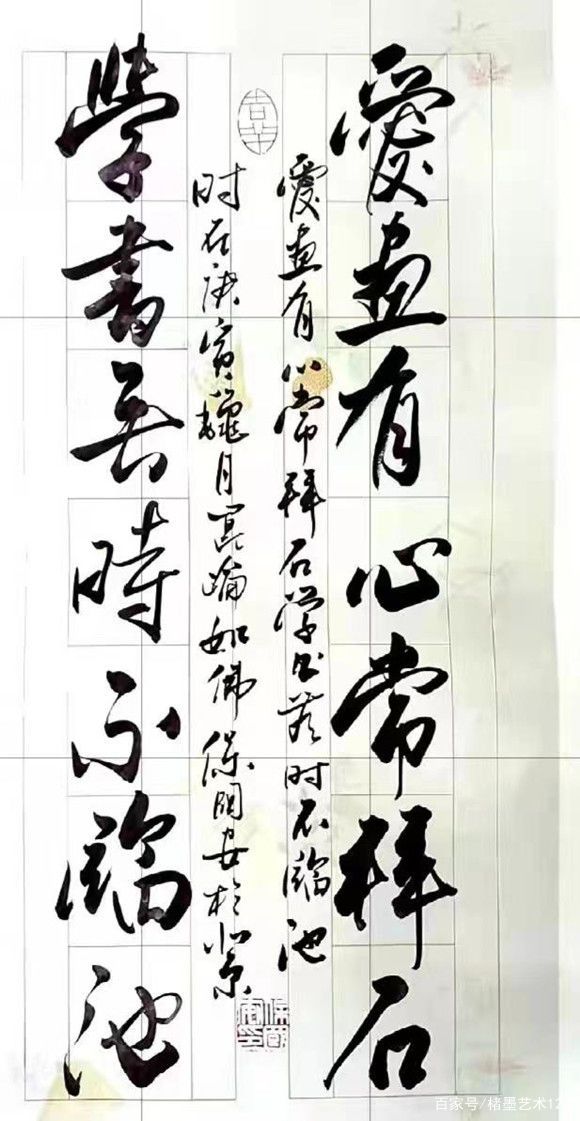 愛畫有心常拜石
學書無時不臨池
愛畫有心常拜石学书無时不臨池
时在庚寅臘月崑崙如佛保国安於北京
吉羊
百家号/楮墨艺术12